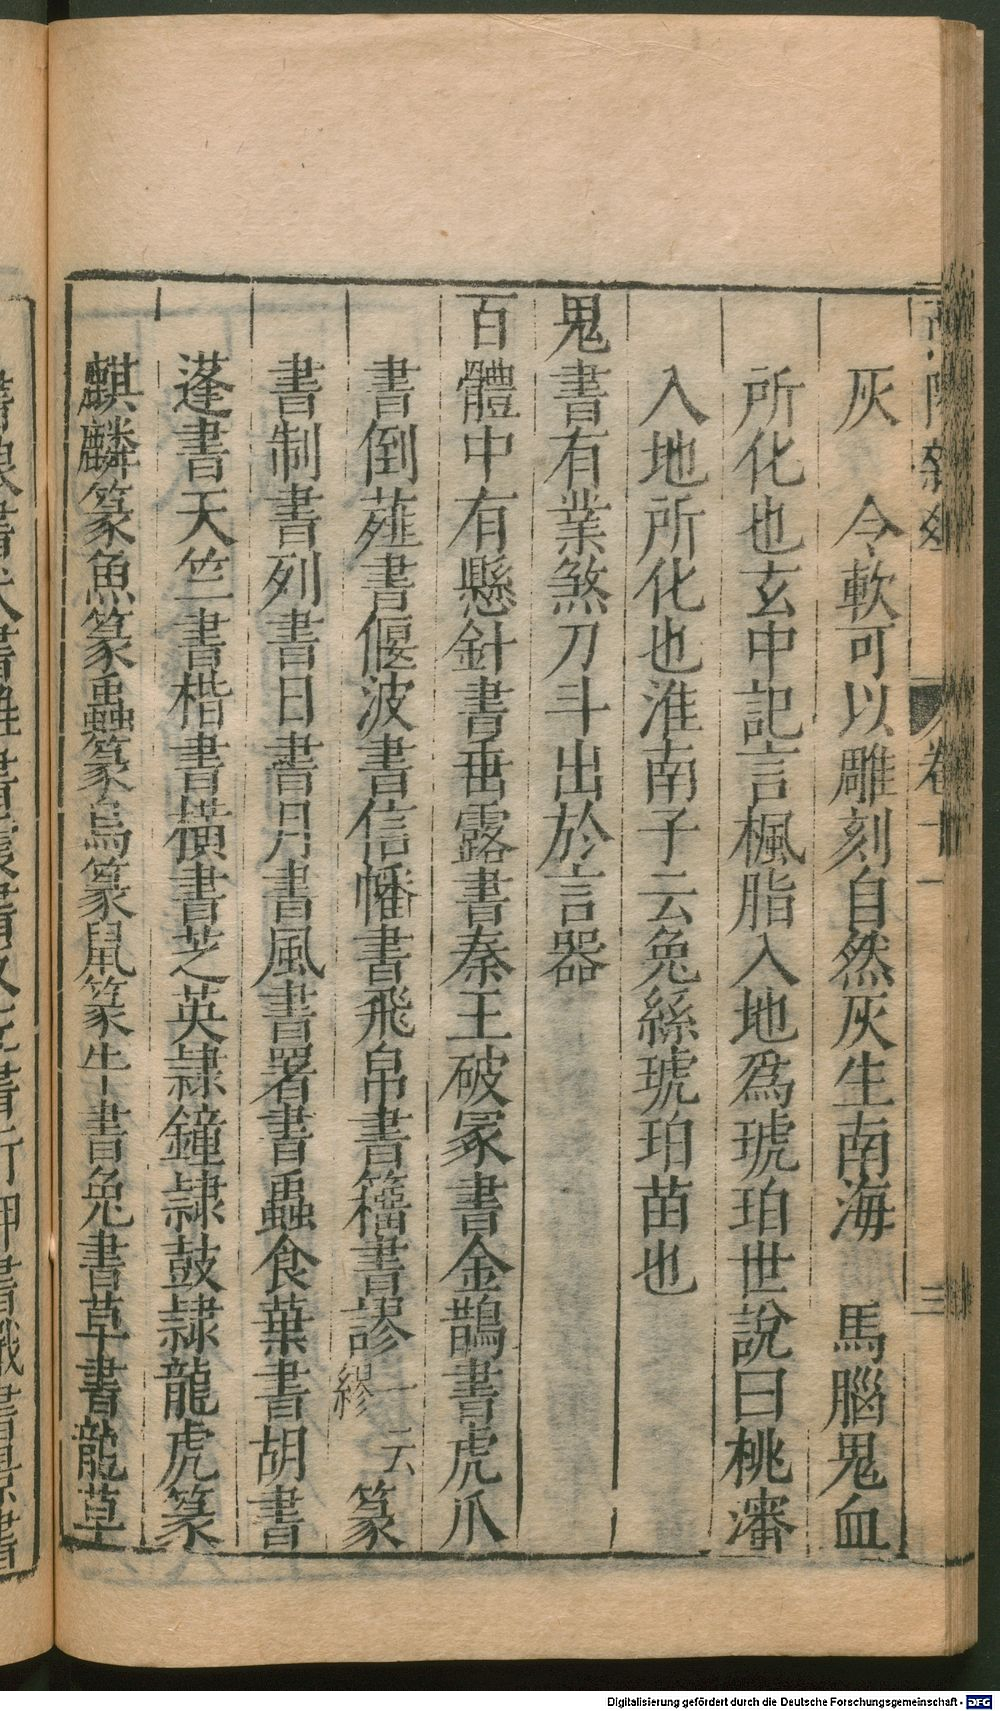 卷十一
三
灰　今軟可以雕刻自然灰生南海　馬腦鬼血
所化也玄中記言楓脂入地爲琥珀世說曰桃瀋
入地所化也淮南子云兔絲琥珀苗也
鬼書有業煞刀斗出於言器
百體中有懸針書垂露書秦王破冢書金鵲書虎爪
書倒薤書偃波書信幡書飛帛書籒書謬一云繆篆
書制書列書日書月書風書署書蟲食葉書胡書
蓬書天竺書楷書橫書芝英隷鐘隷鼓隷龍虎篆
麒麟篆魚篆蟲篆烏篆鼠篆牛書兔書草書龍草
Digitalisierung gefördert durch die Deutsche Forschungsgemeinschaft - DFG